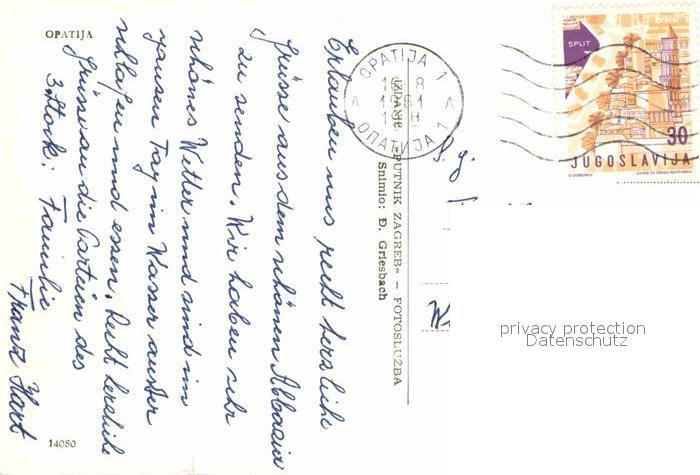 OPATIJA
Erlauben uns recht herzliche
Grüsse aus dem schönen Abbazia
zu senden. Wir haben sehr
schönes Wetter und sind im
ganzen Tag im Wasser außer
schlafen und essen. Recht herzliche
Grüsse an die Parteien des
3. Stock. Familie
Franz Hart
14080
IZDANJE »PUTNIK ZAGREB« — FOTOSLUŽBA
Snimio: Đ. Griesbach
OPATIJA 1
ОПАТИЈА 1
A A
SPLIT
30
JUGOSLAVIJA
privacy protection
Datenschutz